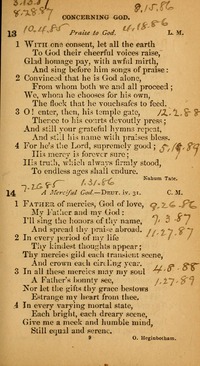 3.13.81
8.28.87
8.15.86
CONCERNING GOD.
10.4.85
4.18.86
13 Praise to God. L. M.
1 WITH one consent, let all the earth
To God their cheerful voices raise;
Glad homage pay, with awful mirth,
And sing before him songs of praise:
2 Convinced that he is God alone,
From whom both we and all proceed;
We, whom he chooses for his own,
The flock that he vouchsafes to feed.
3 O! enter, then, his temple gate, 12.2.88
Thence to his courts devoutly press;
And still your grateful hymns repeat,
And still his name with praises bless.
4 For he's the Lord, supremely good; 5.19.89
His mercy is forever sure;
His truth, which always firmly stood,
To endless ages shall endure.
Nahum Tate.
7.26.85 1.31.86
14 A Merciful God.—DEUT. iv. 31. C. M.
1 FATHER of mercies, God of love, 9.26.86
My Father and my God;
I'll sing the honors of thy name, 9.3.87
And spread thy praise abroad. 11.27.87
2 In every period of my life
Thy kindest thoughts appear;
Thy mercies gild each transient scene,
And crown each circling year.
3 In all these mercies may my soul 4.8.88
A Father's bounty see, 1.27.89
Nor let the gifts thy grace bestows
Estrange my heart from thee.
4 In every varying mortal state,
Each bright, each dreary scene,
Give me a meek and humble mind,
Still equal and serene.
2 O. Heginbotham.